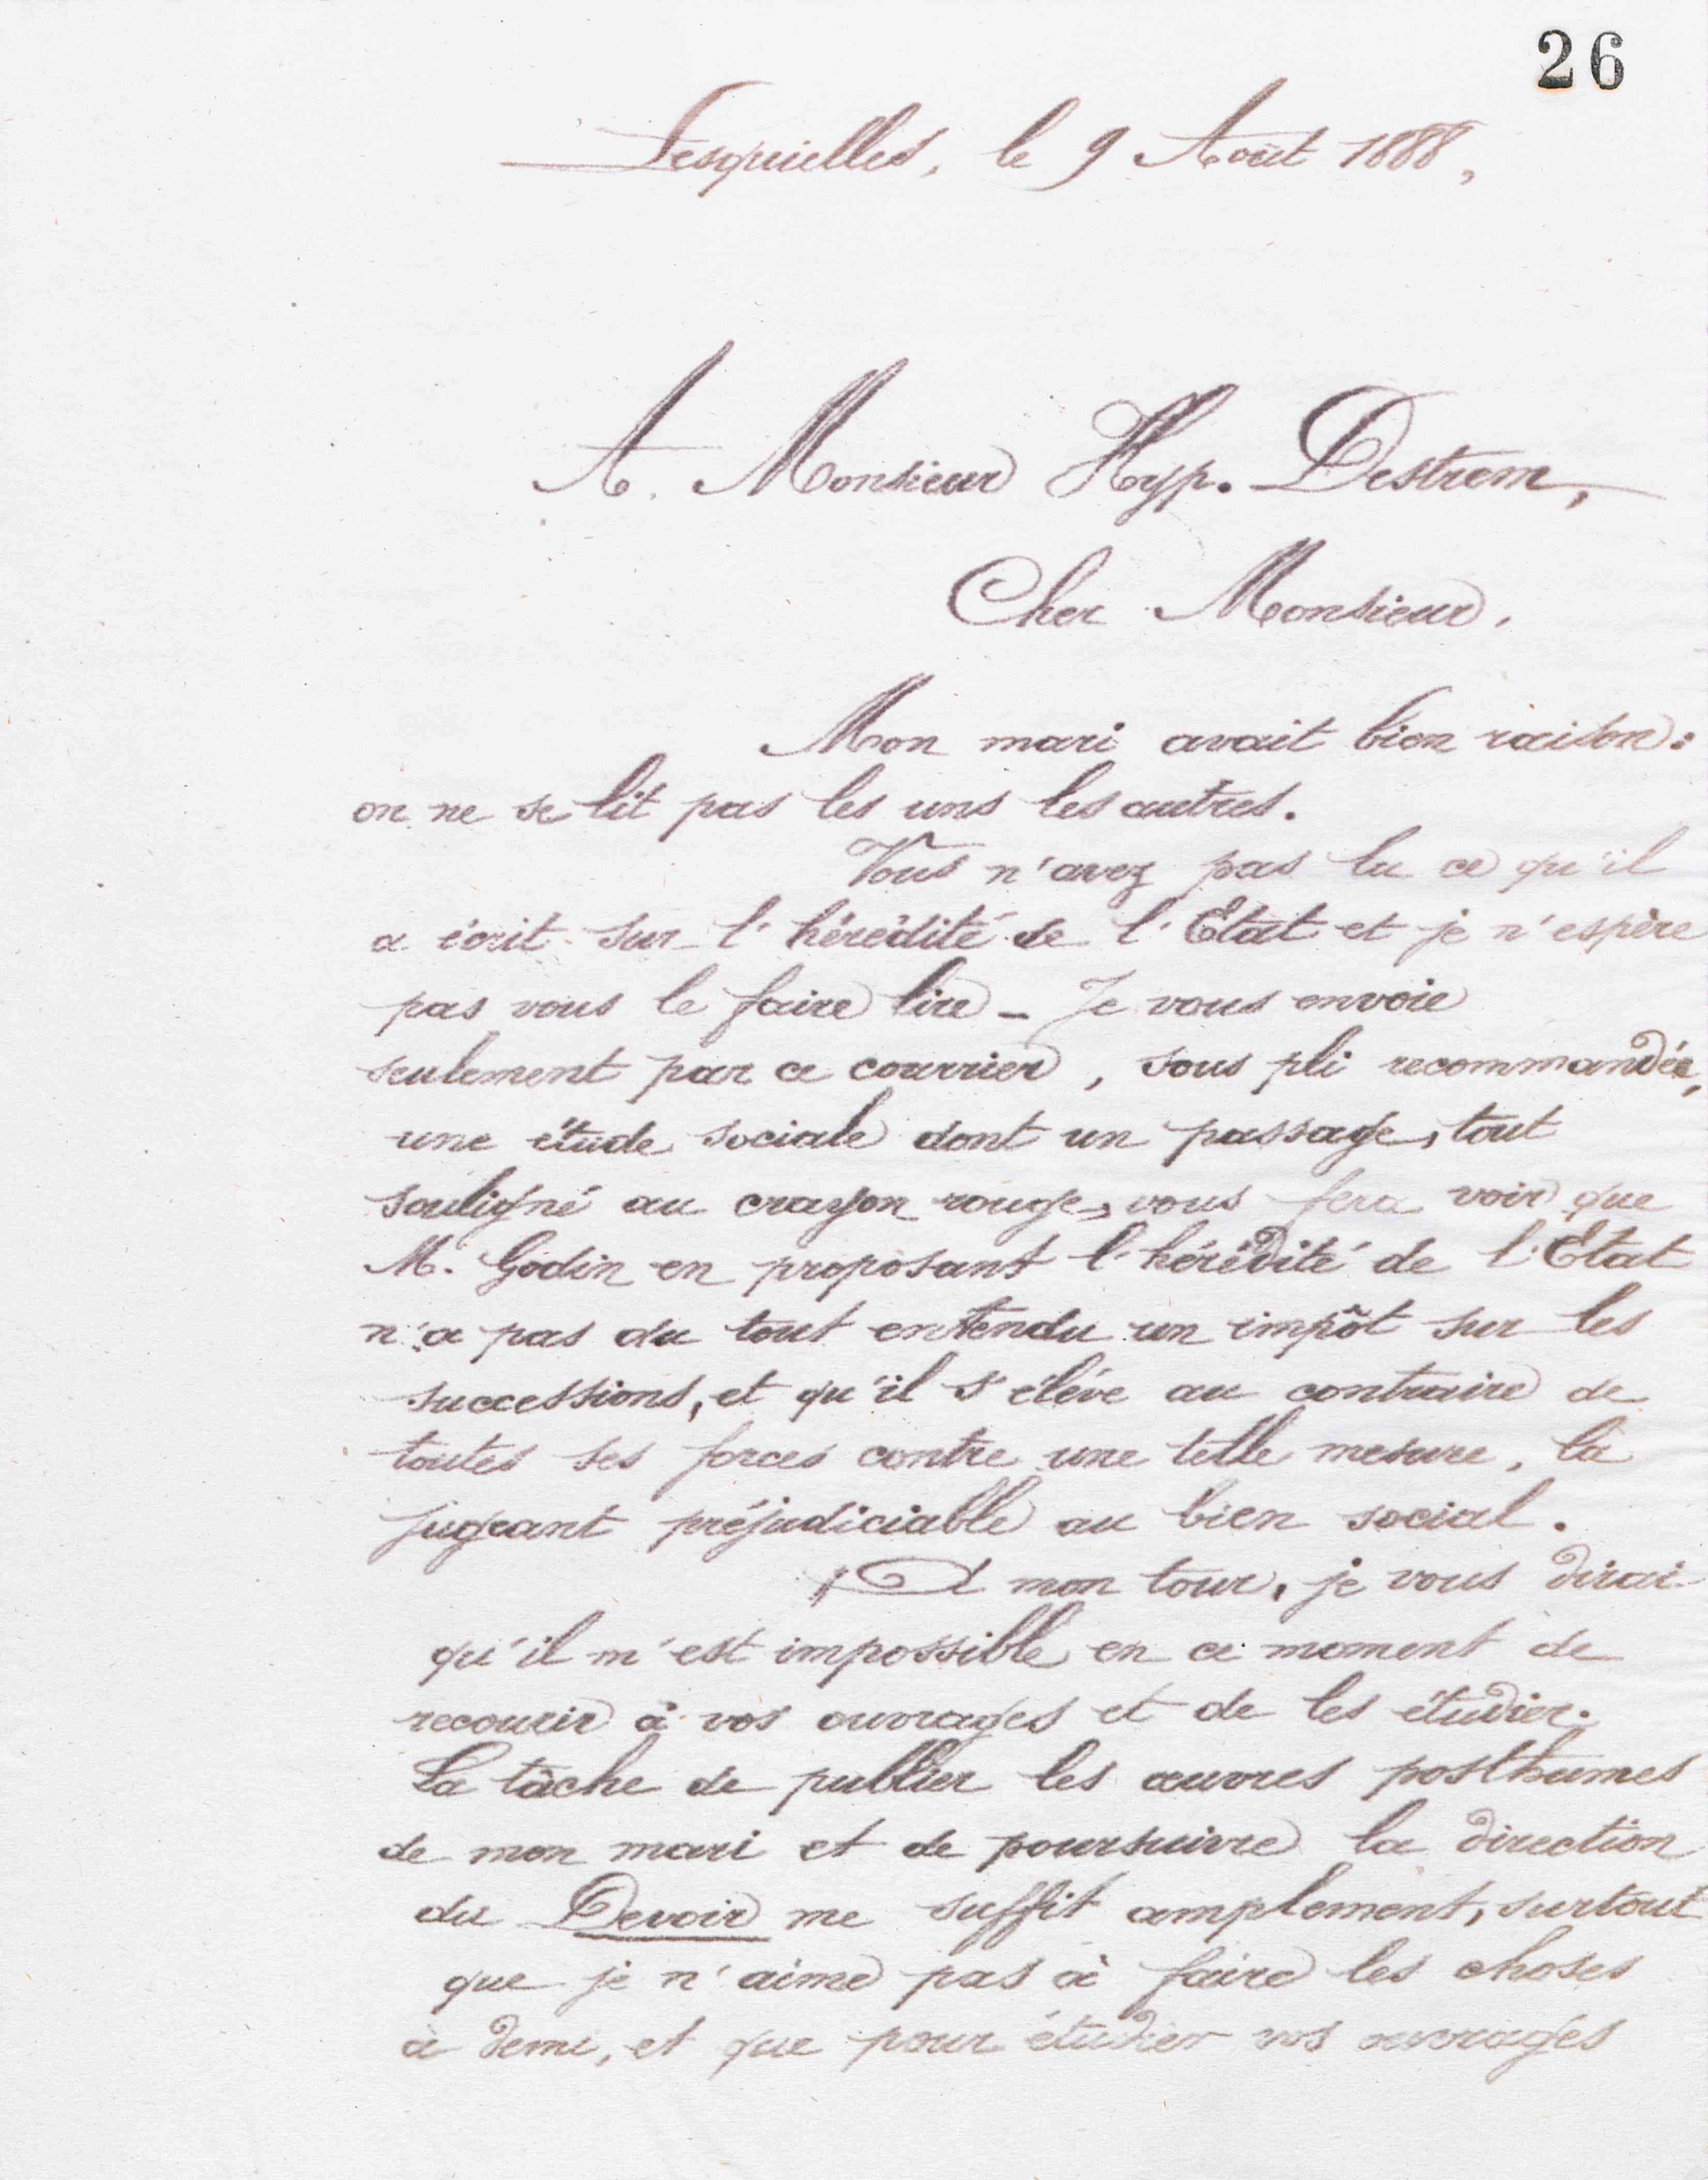 26
Lesquielles, le 9 Août 1888,
A. Monsieur Hyp. Destrem,
Cher Monsieur,
Mon mari avait bien raison :
on ne se lit pas les uns les autres.
Vous n'avez pas lu ce qu'il
a écrit sur l'hérédité de l'Etat et je n'espère
pas vous le faire lire – Je vous envoie
seulement par ce courrier, sous pli recommandé,
une étude sociale dont un passage, tout
souligné au crayon rouge, vous fera voir que
M. Godin en proposant l'hérédité de l'Etat
n'a pas du tout entendu un impôt sur les
successions, et qu'il s'élève au contraire de
toutes ses forces contre une telle mesure, la
jugeant préjudiciable au bien social.
A mon tour, je vous dirai
qu'il m'est impossible en ce moment de
recourir à vos ouvrages et de les étudier.
La tâche de publier les œuvres posthumes
de mon mari et de poursuivre la direction
du Devoir me suffit amplement, surtout
que je n'aime pas à faire les choses
à demi, et que pour étudier vos ouvrages